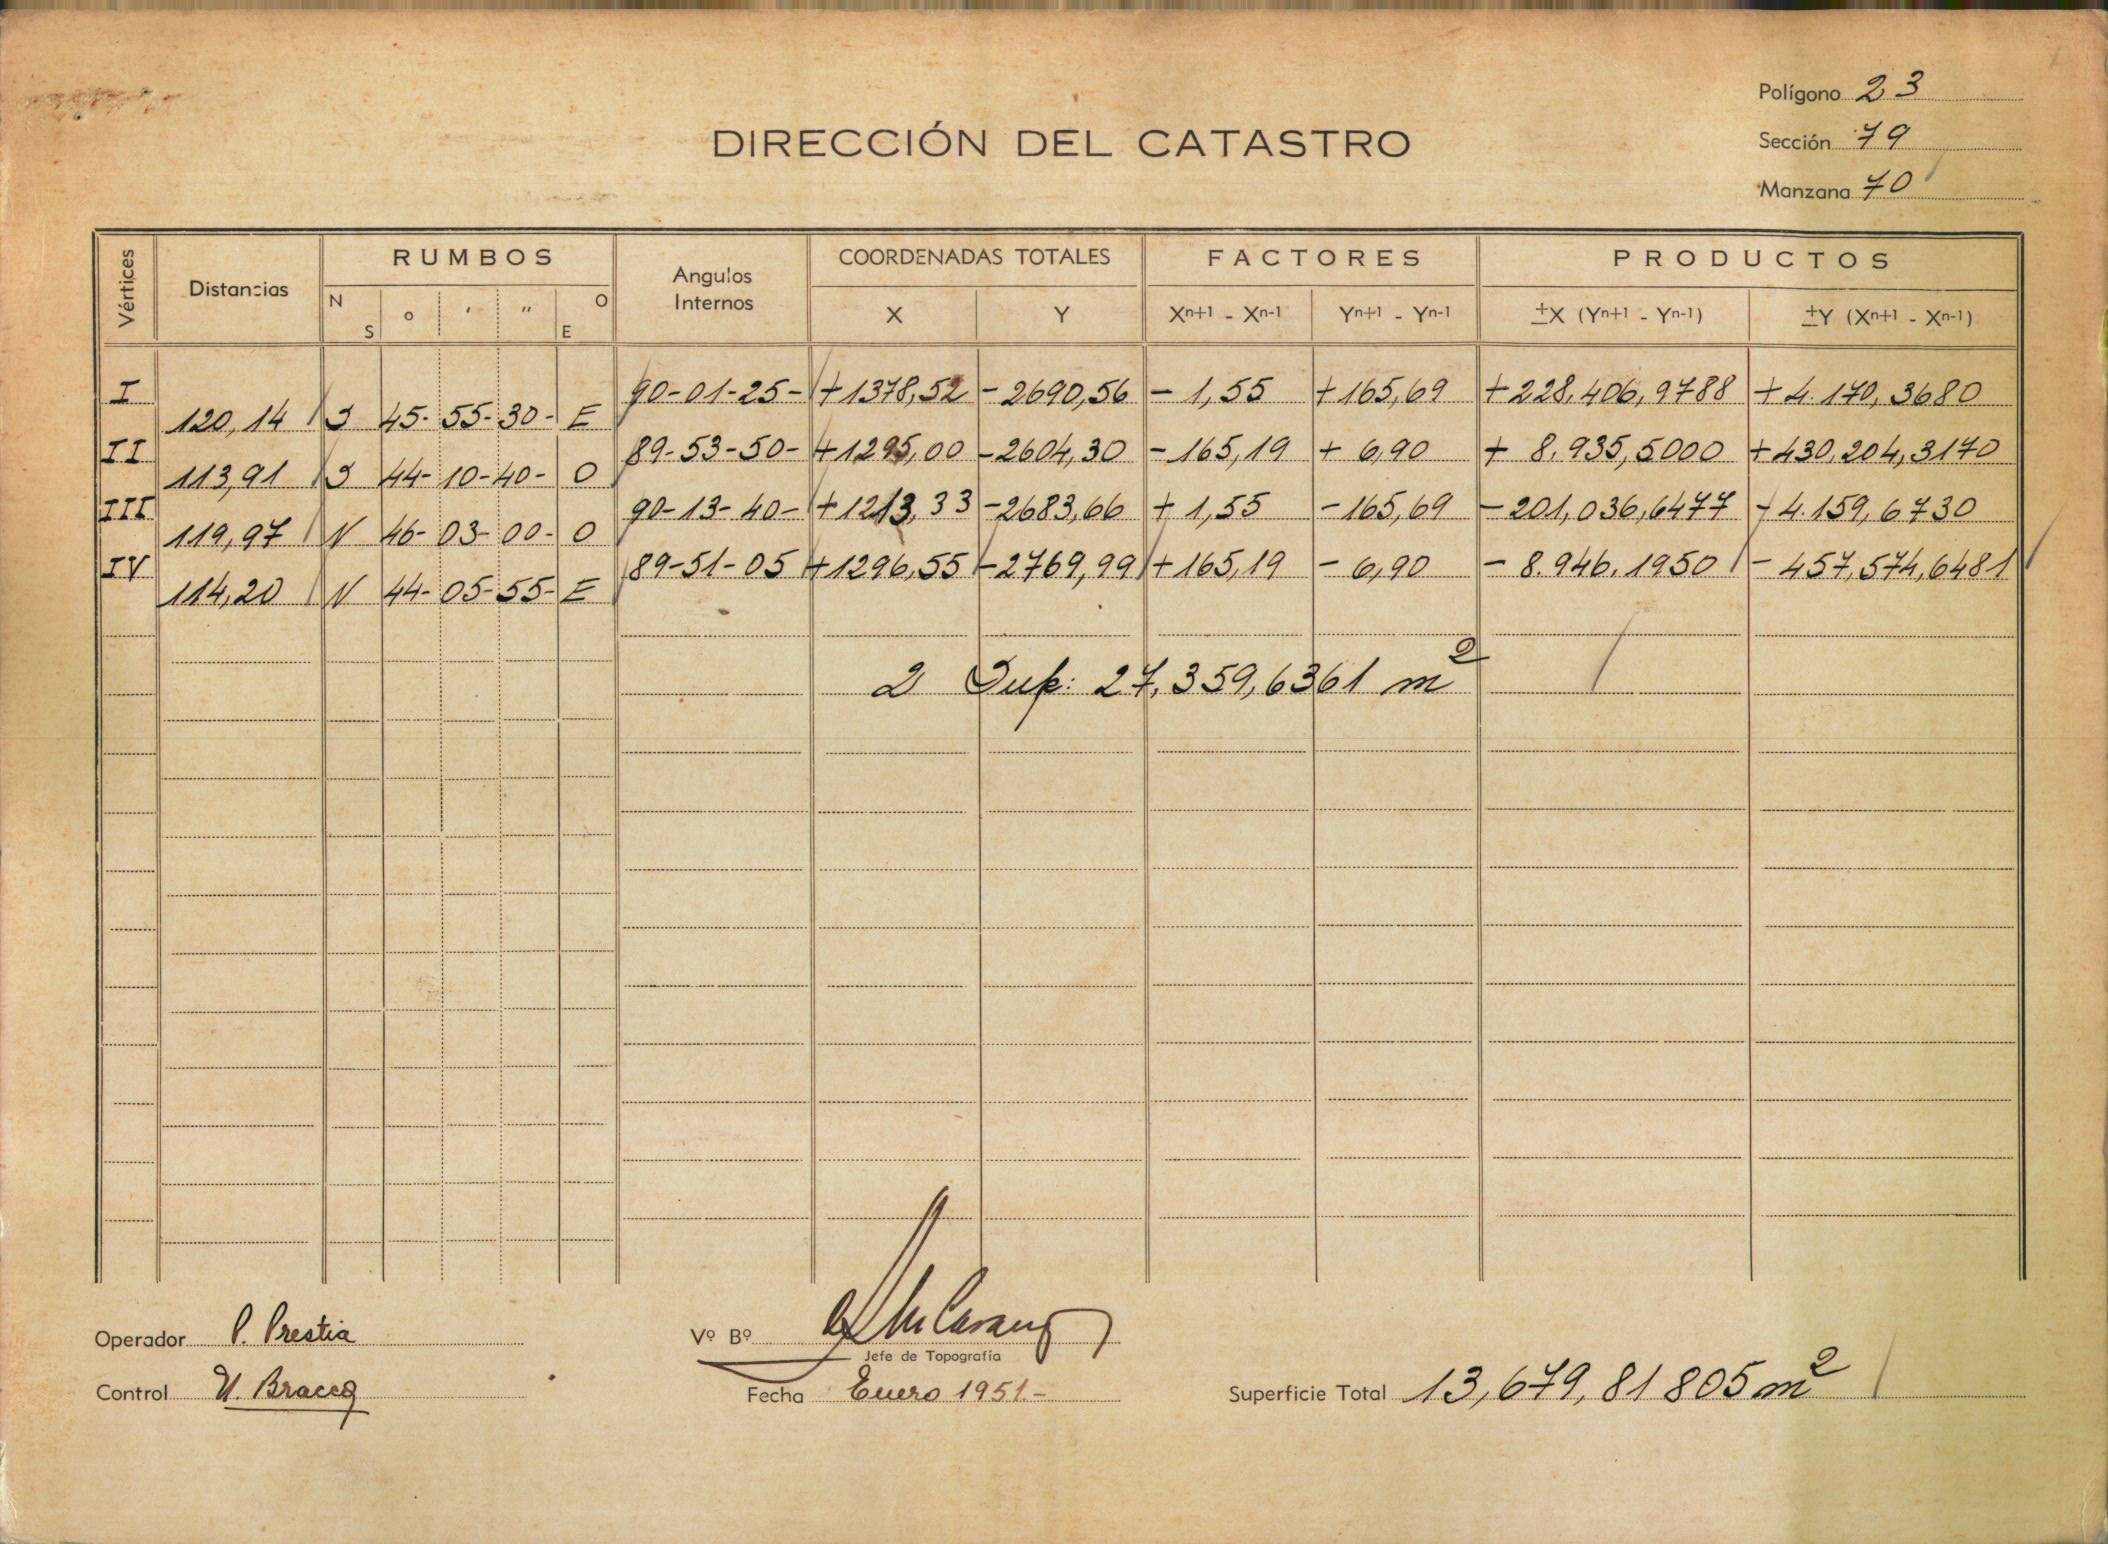 Polígono 23
DIRECCIÓN DEL CATASTRO
Sección 79
Manzana 70
Vértices Distancias RUMBOS Angulos Internos COORDENADAS TOTALES FACTORES PRODUCTOS
N S ° ' " O E X Y Xn+1 - Xn-1 Yn+1 - Yn-1 ±X (Yn+1 - Yn-1) ±Y (Xn+1 - Xn-1)
I 90-01-25- +1378,52 -2690,56 - 1,55 +165,69 +228.406,9788 +4.170,3680
120,14 S 45- 55- 30- E
II 89-53-50- +1295,00 -2604,30 -165,19 + 6,90 + 8.935,5000 +430.204,3170
113,91 S 44- 10- 40- O
III 90-13-40- +1213,33 -2683,66 + 1,55 -165,69 -201,036,6477 -4.159,6730
119,97 N 46- 03- 00- O
IV 89-51-05 +1296,55 -2769,99 +165,19 - 6,90 - 8.946,1950 - 457,574,6481
114,20 N 44- 05- 55- E
2 Sup: 27,359,6361 m²
Operador P. Prestia
Vº Bº
Jefe de Topografía
Control
Fecha Enero 1951.-
Superficie Total 13,679,81805 m²